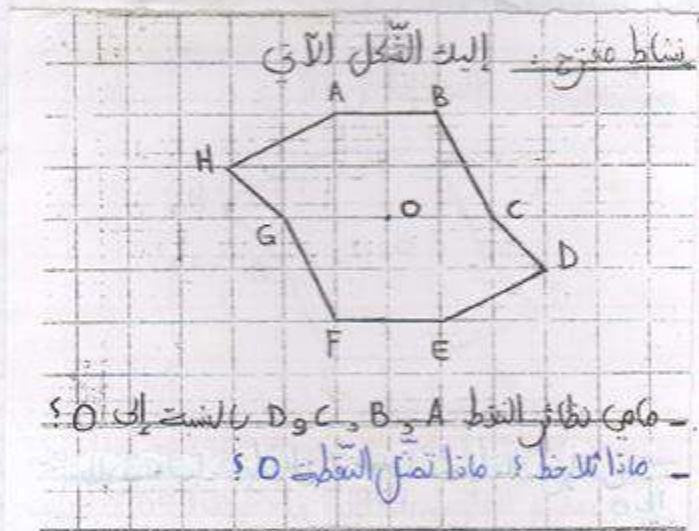 نشاط مقترح : إليك الشّكل الآتي
A B
H
O C
G D
F E
- ماهي نظائر النقط A و B ، C و D بالنسبة إلى O ؟
- ماذا تلاحظ ؟ ماذا تمثل النّقطة O ؟